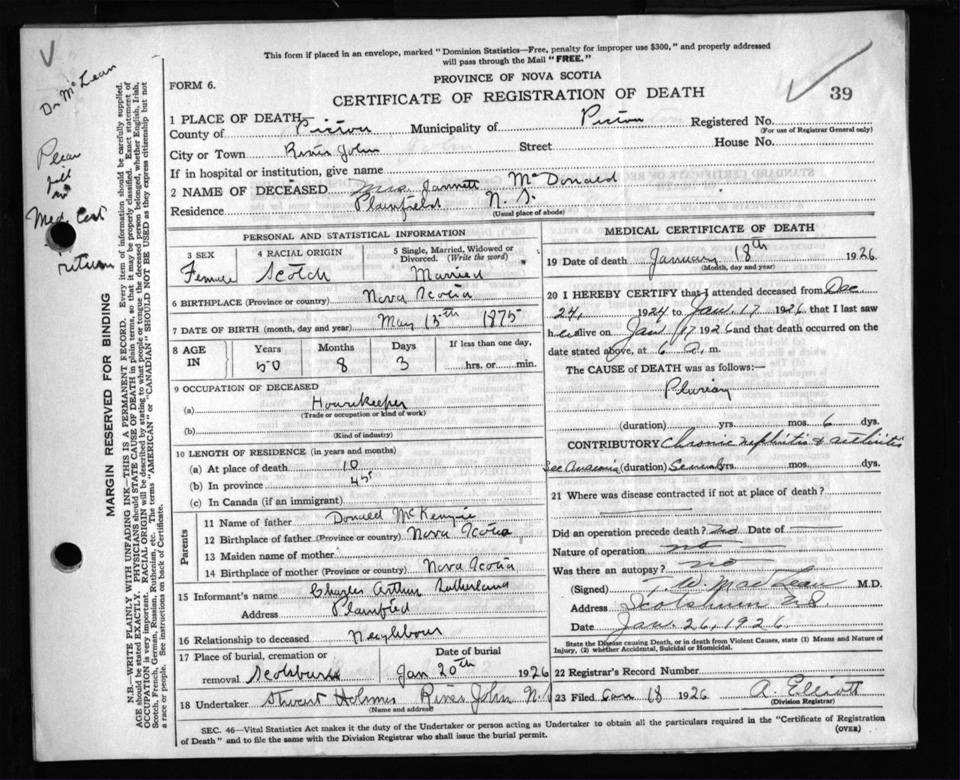 This form if placed in an envelope, marked "Dominion Statistics—Free, penalty for improper use $300," and properly addressed
will pass through the Mail "FREE."
PROVINCE OF NOVA SCOTIA
FORM 6.
CERTIFICATE OF REGISTRATION OF DEATH
39
Dr McLean
Please
fill
in
Med Cert
& return
MARGIN RESERVED FOR BINDING
N.B.—WRITE PLAINLY WITH UNFADING INK—THIS IS A PERMANENT RECORD. Every item of information should be carefully supplied.
AGE should be stated EXACTLY. PHYSICIANS should STATE CAUSE OF DEATH in plain terms, so that it may be properly classified. Exact statement of
OCCUPATION is very important. RACIAL ORIGIN will be described by stating to what people or tongue the deceased person belonged, whether English, Irish,
Scotch, French, German, Russian, Ruthenian, etc. The terms "AMERICAN" or "CANADIAN" SHOULD NOT BE USED as they express citizenship but not
a race or people. See instructions on back of Certificate.
1 PLACE OF DEATH—
County of Pictou Municipality of Pictou Registered No.
(For use of Registrar General only)
City or Town River John Street House No.
If in hospital or institution, give name
2 NAME OF DECEASED Mrs. Jannett McDonald
Residence Plainfield N. S.
(Usual place of abode)
PERSONAL AND STATISTICAL INFORMATION
3 SEX Female
4 RACIAL ORIGIN Scotch
5 Single, Married, Widowed or
Divorced. (Write the word) Married
6 BIRTHPLACE (Province or country) Nova Scotia
7 DATE OF BIRTH (month, day and year) May 15th 1875
8 AGE IN Years 50 Months 8 Days 3 If less than one day, hrs. or min.
9 OCCUPATION OF DECEASED
(a) Housekeeper
(Trade or occupation or kind of work)
(b)
(Kind of industry)
10 LENGTH OF RESIDENCE (in years and months)
(a) At place of death 10
(b) In province 45
(c) In Canada (if an immigrant)
Parents
11 Name of father Donald McKenzie
12 Birthplace of father (Province or country) Nova Scotia
13 Maiden name of mother
14 Birthplace of mother (Province or country) Nova Scotia
15 Informant's name Charles Arthur Sutherland
Address Plainfield
16 Relationship to deceased Neighbour
17 Place of burial, cremation or Date of burial
removal Scotsburn Jan 20th 1926
18 Undertaker Stuart Holmes River John N.S
(Name and address)
MEDICAL CERTIFICATE OF DEATH
19 Date of death January 18th 1926
(Month, day and year)
20 I HEREBY CERTIFY that I attended deceased from Dec
24, 1924 to Jan. 17 1926 that I last saw
her alive on Jan 17 1926 and that death occurred on
date stated above, at 6 a. m.
The CAUSE of DEATH was as follows:—
Pleurisy
(duration) yrs. mos. 6 dys.
CONTRIBUTORY Chronic nephritis & arthritis
Sec Anaemia (duration) Several yrs. mos. dys.
21 Where was disease contracted if not at place of death?
Did an operation precede death? no Date of
Nature of operation no
Was there an autopsy? no
(Signed) W. MacLean M.D.
Address Scotsburn N.S
Date Jan. 26, 1926.
State the Disease causing Death, or in death from Violent Causes, state (1) Means and Nature of
Injury, (2) whether Accidental, Suicidal or Homicidal.
22 Registrar's Record Number
23 Filed Jan 18 1926 A. Elliott
(Division Registrar)
SEC. 46—Vital Statistics Act makes it the duty of the Undertaker or person acting as Undertaker to obtain all the particulars required in the "Certificate of Registration
of Death" and to file the same with the Division Registrar who shall issue the burial permit.
(OVER)